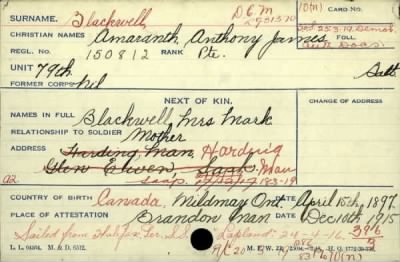 SURNAME. Blackwell D.C.M. 10(m) CARD NO.
CHRISTIAN NAMES Amaranth Anthony James FOLL.
REGL. NO. 150812 RANK Pte.
UNIT 79th Batt
FORMER CORPS Nil
NEXT OF KIN. CHANGE OF ADDRESS
NAMES IN FULL Blackwell, Mrs Mark
RELATIONSHIP TO SOLDIER Mother
ADDRESS Harding Man, Harding
Glen Elwen, Sask. Man
18-3-19
COUNTRY OF BIRTH Canada, Mildmay Ont DATE April 15th, 1897
PLACE OF ATTESTATION Brandon Man DATE Dec 10th, 1915
Sailed from Halifax Per. S.S. "Lapland" 24-4-16. 396
L. L. M. & D. 6512. M. F. W. H. Q.